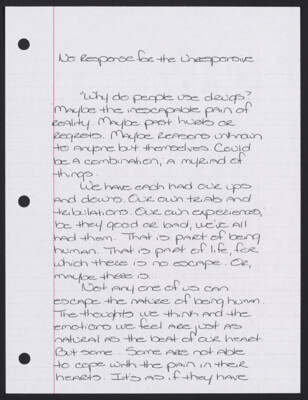 No Response for the Unresponsive
"Why do people use drugs?
Maybe the inescapable pain of
reality. Maybe past hurts or
regrets. Maybe reasons unknown
to anyone but themselves. Could
be a combination, a myriad of
things.
We have each had our ups
and downs. Our own trials and
tribulations. Our own experiences,
be they good or bad, we've all
had them. That is part of being
human. That is part of life, for
which there is no escape. Or,
maybe there is.
Not any one of us can
escape the nature of being human.
The thoughts we think and the
emotions we feel are just as
natural as the beat of our heart.
But some... Some are not able
to cope with the pain in their
hearts. It's as if they have